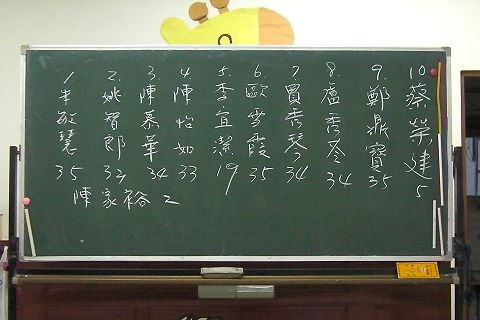 1. 牛敬慧 35
2. 姚智郎 33
3. 陳慕華 34
4. 陳怡如 33
5. 李宜潔 19
6. 歐雪霞 35
7. 買秀琴 34
8. 盧秀苓 34
9. 鄭鼎寶 35
10 蔡榮建 5
陳家裕 2